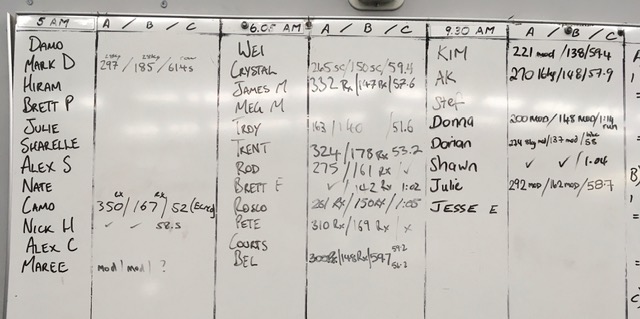 5 AM A / B / C
DAMO
MARK D 297 / 185 / 614s
HIRAM
BRETT P
JULIE
SHARELLE
ALEX S
NATE
CAMO 350 / 167 / 52 (Ecno)
NICK H ✓ ✓ 58.5
ALEX C
MAREE mod / mod / ?
6.05 AM A / B / C
WEI
CRYSTAL 265 sc / 150 sc / 59.4
JAMES M 332 Rx / 147 Rx / 57.6
MEG M
TROY 163 / 140 51.6
TRENT 324 / 178 Rx 53.2
ROD 275 / 161 Rx ✓
BRETT E ✓ / 142 Rx 1:02
ROSCO 261 Rx / 150 Rx / 1:05
PETE 310 Rx / 169 Rx / x
COURTS
BEL 300 Rx / 148 Rx / 59.7
9.30 AM A / B / C
KIM 221 mod / 138 / 59.4
AK 270 16kg / 148 / 57.9
Stef
Donna 200 MOD / 148 MOD / 1:14 run
Dorian 224 8kg md / 137 mod / 58
Shawn ✓ ✓ / 1.04
Julie 292 mod / 162 mod / 58.7
JESSE E